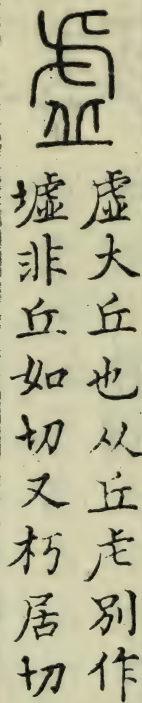 虛
虛大丘也从丘虍別作
墟非丘如切又朽居切